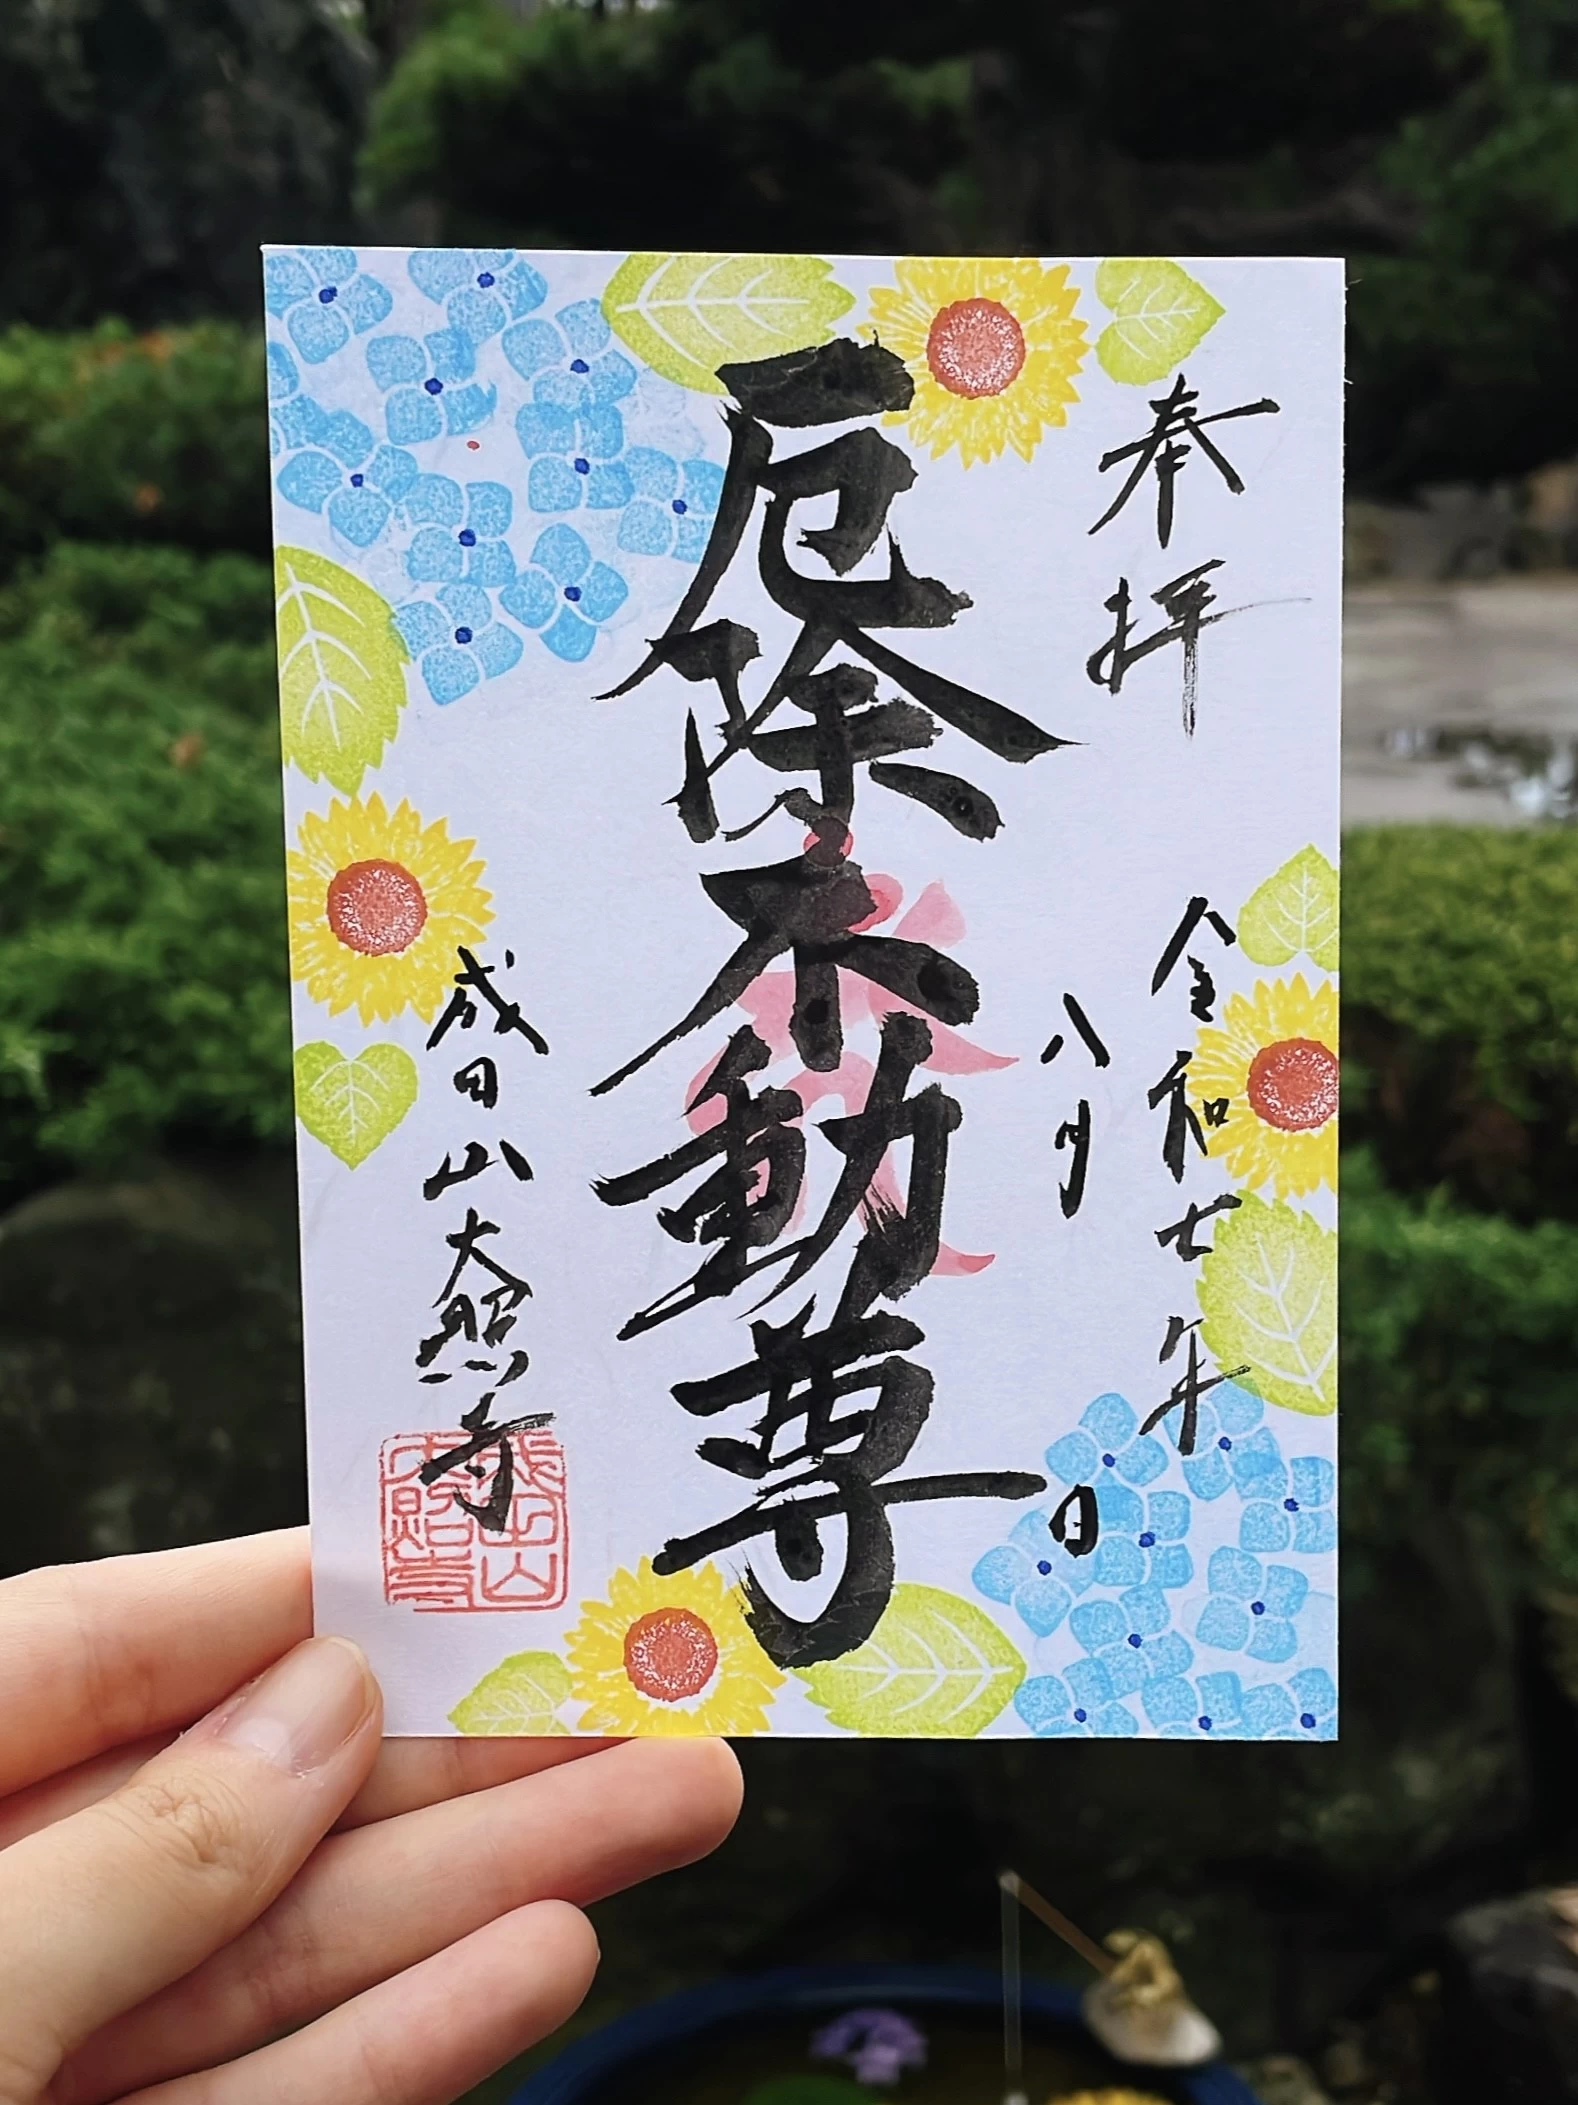 奉拝
令和七年
八月 日
厄除不動尊
成田山大照寺
成田山
大照寺